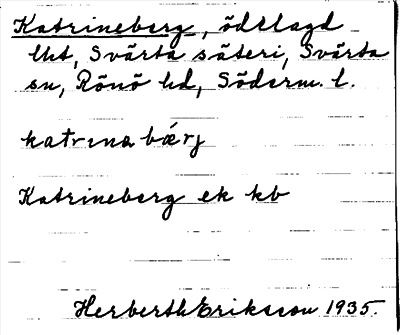 Katrineberg, ödelagd
lht, Svärta säteri, Svärta
sn, Rönö hd, Söderm. l.
katrina bærj
Katrineberg ek kb
Herberth Eriksson 1935.